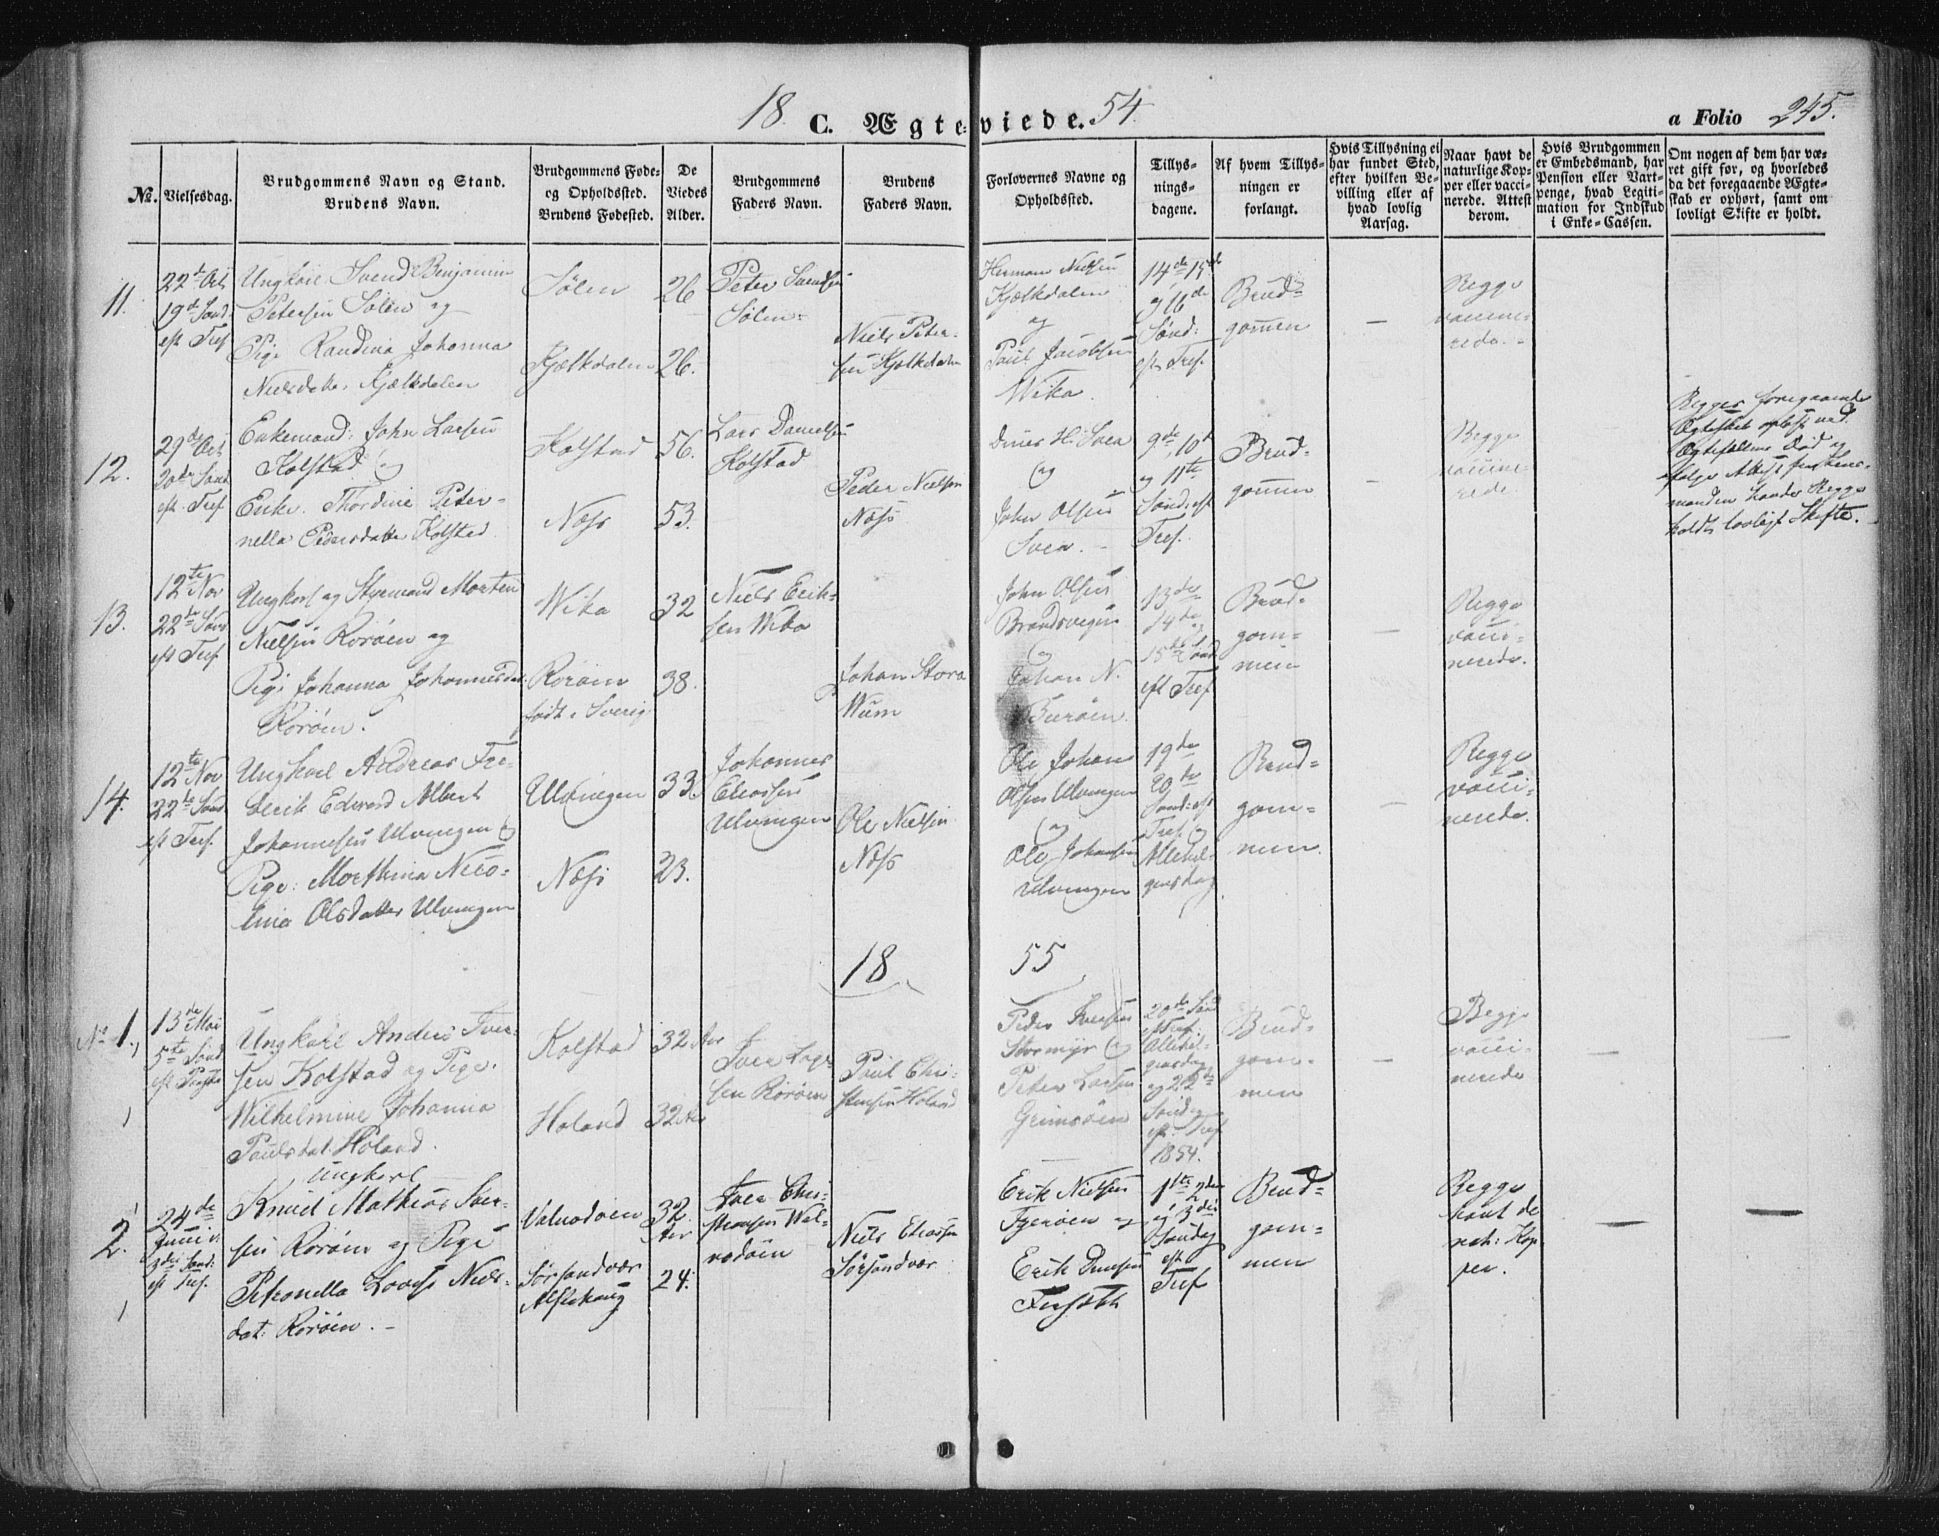 18 C. Ægteviede. 54. a Folio 245.
No.
Vielsesdag.
Brudgommens Navn og Stand.
Brudens Navn.
Brudgommens Føde-
og Opholdssted.
Brudens Fødested.
De
Viedes
Alder.
Brudgommens
Faders Navn.
Brudens
Faders Navn.
Forlovernes Navne og
Opholdssted.
Tillys-
nings-
dagene.
Af hvem Tillys-
ningen er
forlangt.
Hvis Tillysning ei
har fundet Sted,
efter hvilken Be-
villing eller af
hvad lovlig
Aarsag.
Naar havt de
naturlige Kop-
per eller vacci-
nerede. Attest
derom.
Hvis Brudgommen
er Embedsmand, har
Pension eller Vart-
penge, hvad Legiti-
mation for Indskud
i Enke-Cassen.
Om nogen af dem har væ-
ret gift før, og hvorledes
da det foregaaende Ægte-
skab er ophørt, samt om
lovligt Skifte er holdt.
11.
22de Oct
19de Sønd
eft Tref
Ungkarl Svend Benjamin
Petersen Sølen og
Pige Randina Johanna
Nielsdatter Kjælkdalen
Sølen
Kjælkdalen
26
26.
Peter Svendsen
Sølen
Niels Peter-
sen Kjelkdalen
Herman Nielsen
Kjælkdalen
og
Paul Jacobsen
Wika.
14de 15de
og 16de
Sønd:
eft Tref.
Brud-
gommen
—
Begge
vaccine-
rede.
12.
29de Oct
20de Sønd
eft Tref.
Enkemand: John Larsen
Kolstad og
Enke. Thordine Peter-
nella Pedersdatter Kolstad
Kolstad
Næss
56.
53.
Lars Danielsen
Kolstad
Peder Nielsen
Næss
H. Svea
og
John Olsen
Svea.
9de, 10de
og 11te
Sønd: eft
Tref.
Brud-
gommen
—
Begge
vaccine-
rede.
Begges foregaaende
Ægteskab opløst ved
Ægtefællens Død og
ifølge Attest fra
manden havde Begge
holdt lovligt Skifte.
13.
12te Nov
22de Sønd
eft Tref.
Ungkarl og Styrmand Morten
Nielsen Rorøen og
Pige Johanna Johannesdat.
Rorøen.
Wika
Rorøen
født i Sverig
32
38.
Niels Erik-
sen Wika
Johan Stora
Wum
John Olsen
Brandsvigen
og
Johan N.
Buerøen.
13de
14de og
15de Sønd
eft Tref
Brud-
gom-
men
—
Begge
vacci-
nerede.
14.
12te Nov
22de Sønd.
eft Tref.
Ungkarl Andreas Fre-
derik Edvard Albert
Johannesen Ulvingen og
Pige: Morthina Nico-
lina Olsdatter Ulvingen
Ulvingen
Næss
33.
23.
Johannes
Eliassen
Ulvingen
Ole Nielsen
Næss
Ole Johan
Olsen Ulvingen
og
Ole Johansen
Ulvingen
19de
20de
Sønd: eft
Tref og
Allehel-
gensdag
Brud-
gom-
men.
—
Begge
vacci-
nerede.
18 55
No 1.
13de Mai
5te Sønd
eft Paaske
Ungkarl Anders Iver-
sen Kolstad og Pige.
Wilhelmine Johanna
Paulsdat. Holand.
Kolstad
Holand
32 Aar
32 Aar
Iver Lars-
sen Rorøen
Paul Chri-
stensen Holand
Peder Iversen
Stormyr og
Peter Larsen
Grimsøen
20de Sønd
eft Tref:
Allehel-
gensdag
og 22de
Sønd
eft Tref
1854.
Brud-
gom-
men
—
Begge
vacci-
nerede
—
—
2.
24de
Junii
3die Sønd:
eft Tref.
Ungkarl
Knud Mathias Iver-
sen Rorøen og Pige
Petronella Lovise Niels-
dat: Rorøen. —
Valvodøen
Sørsandvær
Alstahaug
32
Aar
24.
Iver Chri-
stensen Wal-
vodøen
Niels Eliassen
Sørsandvær
Erik Nielsen
Tjerøen og
Erik
1ste 2den
og 3die
Søndag
eft
Tref
Brud-
gom-
men
Begge
havt de
nat: Kop
per.
—
—